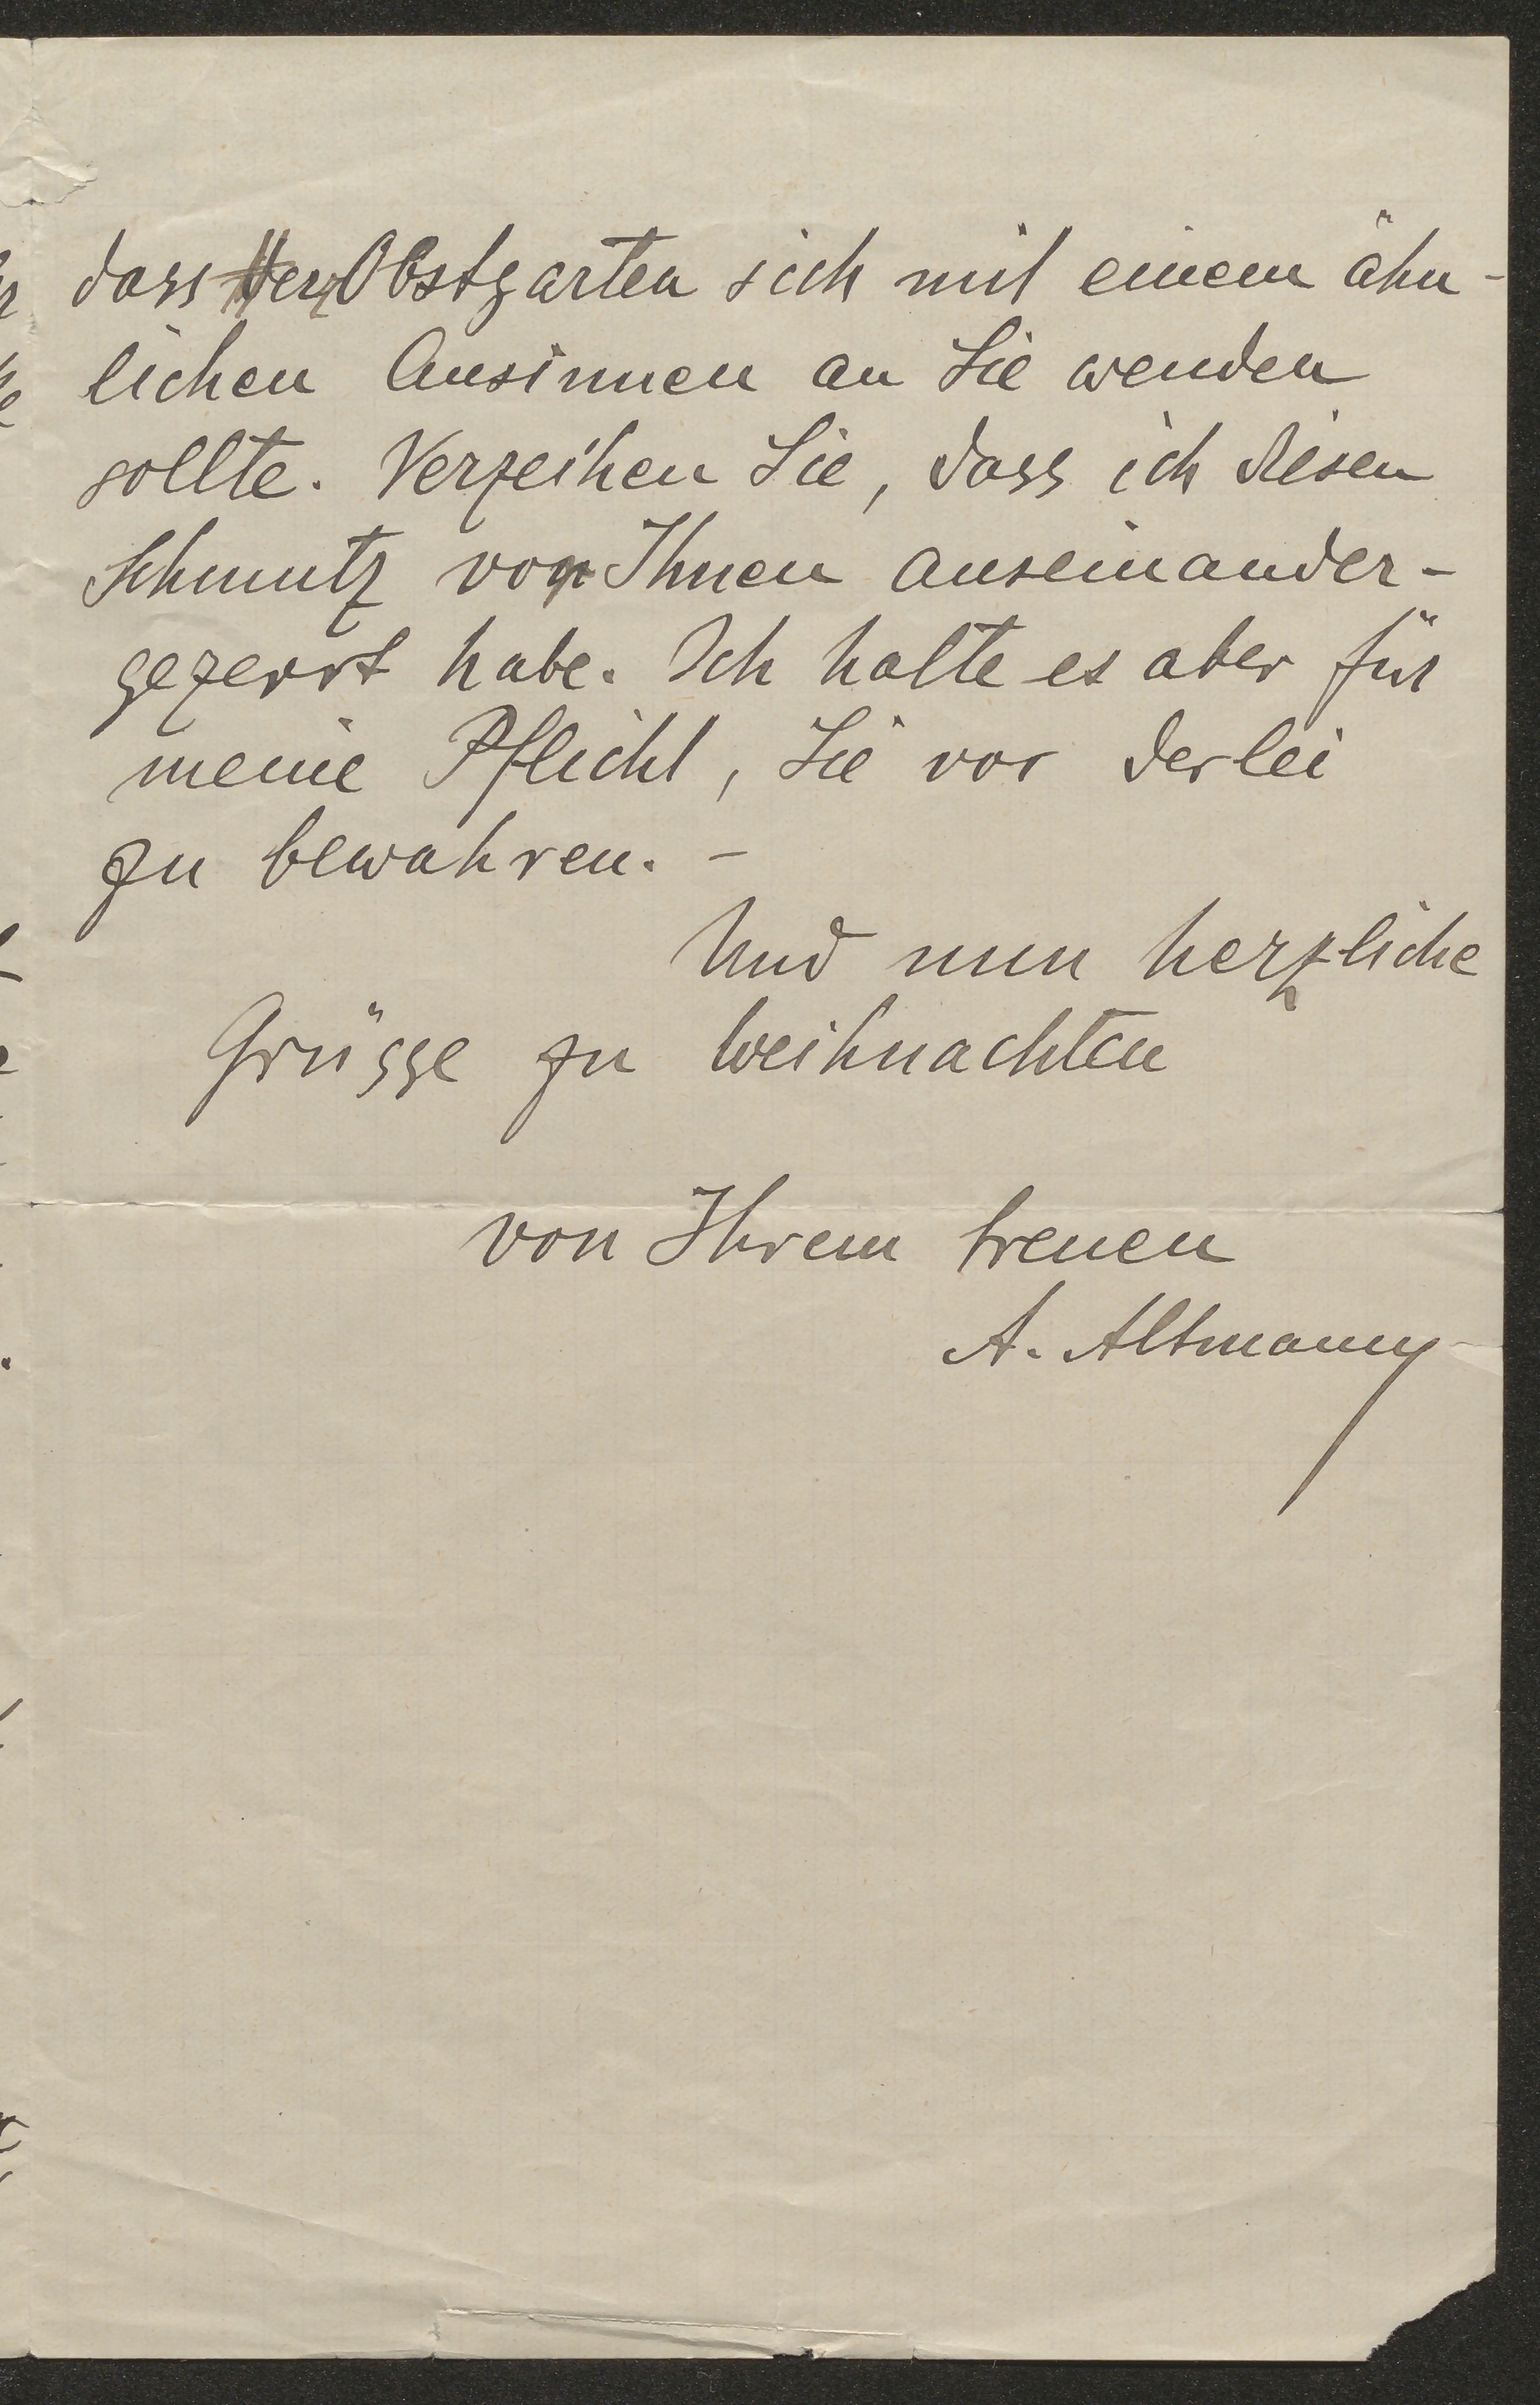 dass Herr Obstgarten sich mit einem ähn-
lichen Ansinnen an Sie wenden
sollte. Verzeihen Sie, dass ich diesen
Schmutz vor Ihnen auseinander-
gezerrt habe. Ich halte es aber für
meine Pflicht, Sie vor derlei
zu bewahren. –
Und nun herzliche
Grüsse zu Weihnachten
von Ihrem treuen
A. Altmann